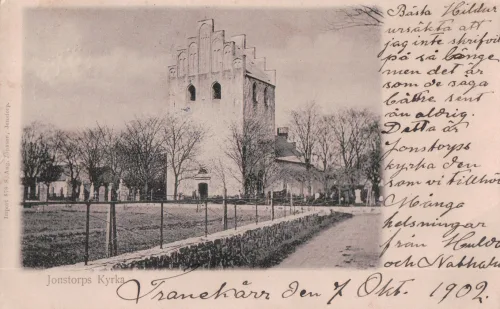 Bästa Hildur
ursäkta att
jag inte skrifvit
på så länge
men det är
som de säga
bättre sent
än aldrig.
Detta är
Jonstorps
kyrka den
som vi tillhör
Många
helsningar
från Huldа
och Nathalia
Jonstorps Kyrka
Tranekärr den 7 Okt. 1902.